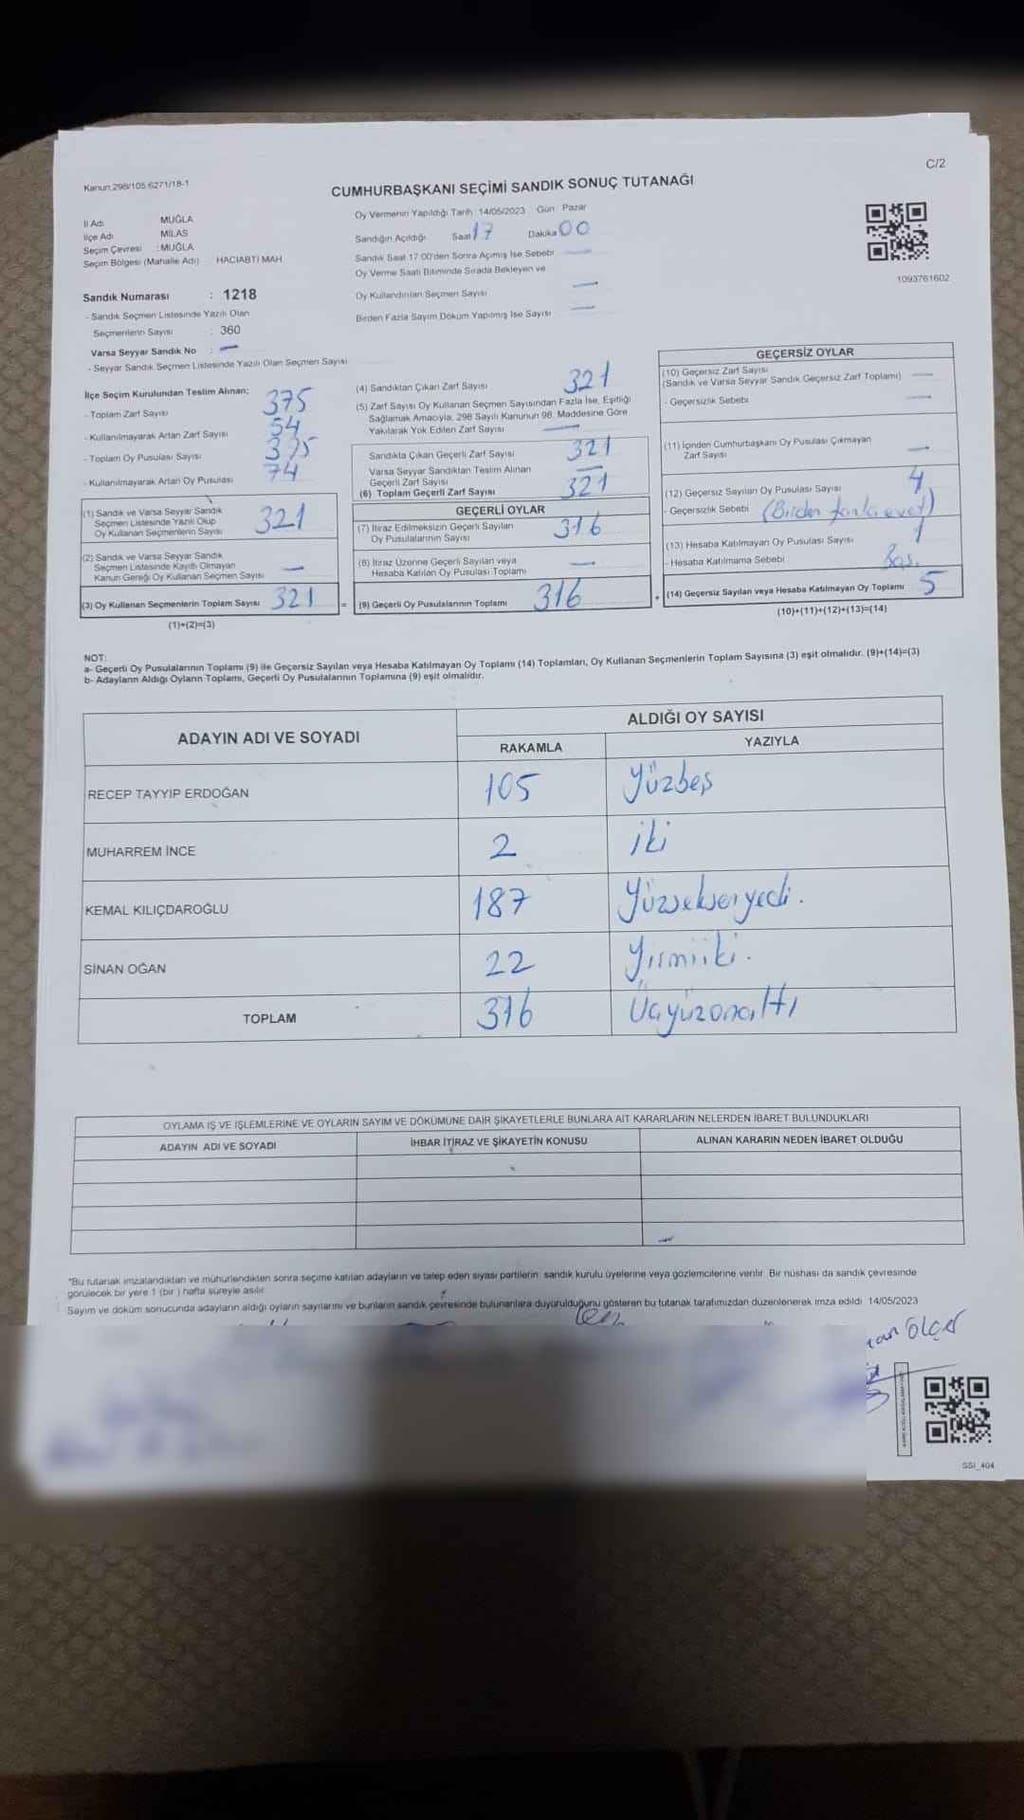 C/2
Kanun:298/105 6271/18-1
CUMHURBAŞKANI SEÇİMİ SANDIK SONUÇ TUTANAĞI
İl Adı MUĞLA
İlçe Adı MİLAS
Seçim Çevresi :MUĞLA
Seçim Bölgesi (Mahalle Adı) HACIABTİ MAH
Sandık Numarası : 1218
- Sandık Seçmen Listesinde Yazılı Olan
Seçmenlerin Sayısı : 360
Varsa Seyyar Sandık No : —
- Seyyar Sandık Seçmen Listesinde Yazılı Olan Seçmen Sayısı
Oy Vermenin Yapıldığı Tarih :14/05/2023 Gün : Pazar
Sandığın Açıldığı Saat 17 Dakika 00
Sandık Saat 17:00'den Sonra Açımış İse Sebebi —
Oy Verme Saati Bitiminde Sırada Bekleyen ve
Oy Kullandırılan Seçmen Sayısı —
Birden Fazla Sayım Döküm Yapılmış İse Sayısı —
1093761602
İlçe Seçim Kurulundan Teslim Alınan;
- Toplam Zarf Sayısı 375
- Kullanılmayarak Artan Zarf Sayısı 54
- Toplam Oy Pusulası Sayısı 375
- Kullanılmayarak Artan Oy Pusulası 74
(1) Sandık ve Varsa Seyyar Sandık
Seçmen Listesinde Yazılı Olup
Oy Kullanan Seçmenlerin Sayısı 321
(2) Sandık ve Varsa Seyyar Sandık
Seçmen Listesinde Kayıtlı Olmayan
Kanun Gereği Oy Kullanan Seçmen Sayısı —
(3) Oy Kullanan Seçmenlerin Toplam Sayısı 321 =
(1)+(2)=(3)
(4) Sandıktan Çıkan Zarf Sayısı 321
(5) Zarf Sayısı Oy Kullanan Seçmen Sayısından Fazla İse, Eşitliği
Sağlamak Amacıyla, 298 Sayılı Kanunun 98. Maddesine Göre
Yakılarak Yok Edilen Zarf Sayısı —
Sandıkta Çıkan Geçerli Zarf Sayısı 321
Varsa Seyyar Sandıktan Teslim Alınan
Geçerli Zarf Sayısı —
(6) Toplam Geçerli Zarf Sayısı 321
GEÇERLİ OYLAR
(7) İtiraz Edilmeksizin Geçerli Sayılan
Oy Pusulalarının Sayısı 316
(8) İtiraz Üzerine Geçerli Sayılan veya
Hesaba Katılan Oy Pusulası Toplamı —
(9) Geçerli Oy Pusulalarının Toplamı 316 +
GEÇERSİZ OYLAR
(10) Geçersiz Zarf Sayısı
(Sandık ve Varsa Seyyar Sandık Geçersiz Zarf Toplamı) —
- Geçersizlik Sebebi —
(11) İçinden Cumhurbaşkanı Oy Pusulası Çıkmayan
Zarf Sayısı —
(12) Geçersiz Sayılan Oy Pusulası Sayısı 4
- Geçersizlik Sebebi (Birden fazla evet)
(13) Hesaba Katılmayan Oy Pusulası Sayısı 1
- Hesaba Katılmama Sebebi Boş.
(14) Geçersiz Sayılan veya Hesaba Katılmayan Oy Toplamı 5
(10)+(11)+(12)+(13)=(14)
NOT:
a- Geçerli Oy Pusulalarının Toplamı (9) ile Geçersiz Sayılan veya Hesaba Katılmayan Oy Toplamı (14) Toplamları, Oy Kullanan Seçmenlerin Toplam Sayısına (3) eşit olmalıdır. (9)+(14)=(3)
b- Adayların Aldığı Oyların Toplamı, Geçerli Oy Pusulalarının Toplamına (9) eşit olmalıdır.
ADAYIN ADI VE SOYADI
ALDIĞI OY SAYISI
RAKAMLA YAZIYLA
RECEP TAYYIP ERDOĞAN 105 Yüzbeş
MUHARREM İNCE 2 iki
KEMAL KILIÇDAROĞLU 187 Yüzseksenyedi.
SİNAN OĞAN 22 Yirmiiki.
TOPLAM 316 Üçyüzonaltı
OYLAMA İŞ VE İŞLEMLERİNE VE OYLARIN SAYIM VE DÖKÜMÜNE DAİR ŞİKAYETLERLE BUNLARA AİT KARARLARIN NELERDEN İBARET BULUNDUKLARI
ADAYIN ADI VE SOYADI İHBAR İTİRAZ VE ŞİKAYETİN KONUSU ALINAN KARARIN NEDEN İBARET OLDUĞU
*Bu tutanak imzalandıktan ve mühürlendikten sonra seçime katılan adayların ve talep eden siyasi partilerin sandık kurulu üyelerine veya gözlemcilerine verilir. Bir nüshası da sandık çevresinde
görülecek bir yere 1 (bir ) hafta süreyle asılır.
Sayım ve döküm sonucunda adayların aldığı oyların sayılarını ve bunların sandık çevresinde bulunanlara duyurulduğunu gösteren bu tutanak tarafımızdan düzenlenerek imza edildi 14/05/2023
Ölçer
SSI_404